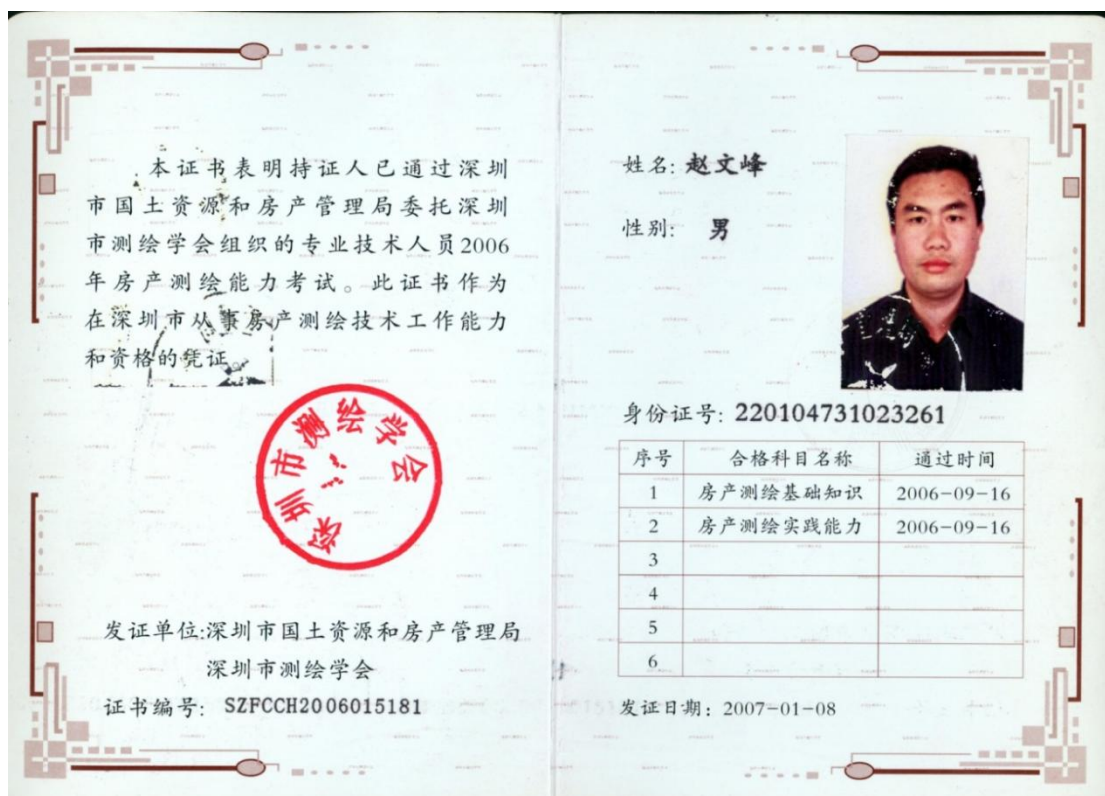 本证书表明持证人已通过深圳
市国土资源和房产管理局委托深圳
市测绘学会组织的专业技术人员2006
年房产测绘能力考试。此证书作为
在深圳市从事房产测绘技术工作能力
和资格的凭证。
深圳市测绘学会
发证单位:深圳市国土资源和房产管理局
深圳市测绘学会
证书编号: SZFCCH2006015181
姓名: 赵文峰
性别: 男
身份证号: 220104731023261
序号 合格科目名称 通过时间
1 房产测绘基础知识 2006-09-16
2 房产测绘实践能力 2006-09-16
3
4
5
6
发证日期: 2007-01-08